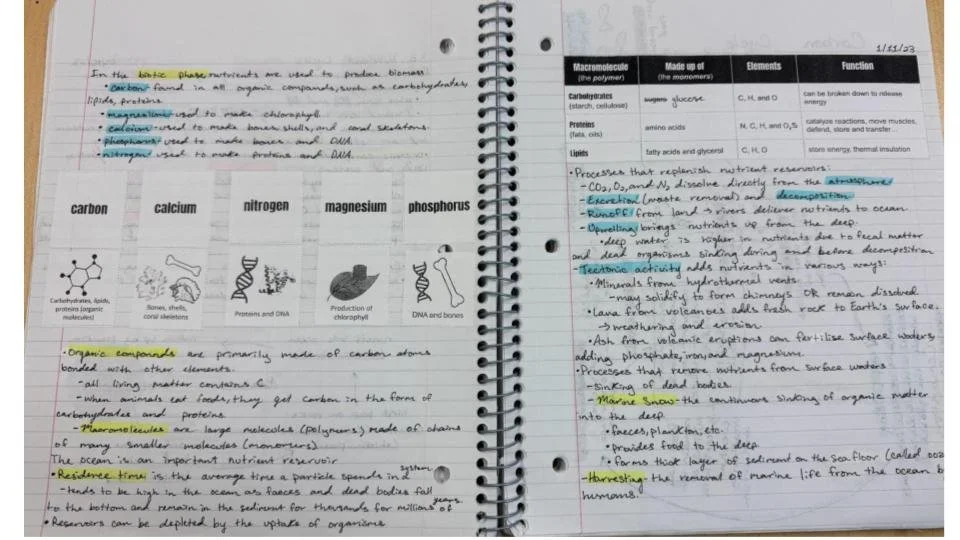 In the biotic phase nutrients are used to produce biomass.
• carbon- found in all organic compounds, such as carbohydrates,
lipids, proteins.
• magnesium- used to make chlorophyll.
• calcium- used to make bones, shells, and coral skeletons.
• phosphorus- used to make bones and DNA.
• nitrogen- used to make proteins and DNA.
carbon
calcium
nitrogen
magnesium
phosphorus
Carbohydrates, lipids,
proteins (organic
molecules)
Bones, shells,
coral skeletons
Proteins and DNA
Production of
chlorophyll
DNA and bones
• Organic compounds are primarily made of carbon atoms
bonded with other elements.
- all living matter contains C
- when animals eat foods, they get carbon in the form of
carbohydrates and proteins.
- Macromolecules are large molecules (polymers) made of chains
of many smaller molecules (monomers)
The ocean is an important nutrient reservoir
• Residence time is the average time a particle spends in a system
- tends to be high in the ocean as faeces and dead bodies fall
to the bottom and remain in the sediment for thousands for millions of years
• Reservoirs can be depleted by the uptake of organisms
1/11/23
Macromolecule (the polymer) Made up of (the monomers) Elements Function
Carbohydrates (starch, cellulose) sugars glucose C, H, and O can be broken down to release energy
Proteins (fats, oils) amino acids N, C, H, and O, S catalyze reactions, move muscles, defend, store and transfer...
Lipids fatty acids and glycerol C, H, O store energy, thermal insulation
• Processes that replenish nutrient reservoirs:
- CO₂, O₂, and N₂ dissolve directly from the atmosphere
- Excretion (waste removal) and decomposition
- Runoff from land → rivers deliever nutrients to ocean.
- Upwelling brings nutrients up from the deep.
• deep water is higher in nutrients due to fecal matter
and dead organisms sinking during and before decomposition
- Tectonic activity adds nutrients in various ways:
• Minerals from hydrothermal vents.
- may solidify to form chimneys OR remain dissolved.
• Lava from volcanoes adds fresh rock to Earth's surface.
→ weathering and erosion.
• Ash from volcanic eruptions can fertilise surface waters,
adding phosphate, iron, and magnesium.
• Processes that remove nutrients from surface waters
- sinking of dead bodies.
- Marine Snow- the continuous sinking of organic matter
into the deep.
• faeces, plankton, etc.
• provides food to the deep
• forms thick layer of sediment on the sea floor (called ooz
- Harvesting- the removal of marine life from the ocean b
humans.